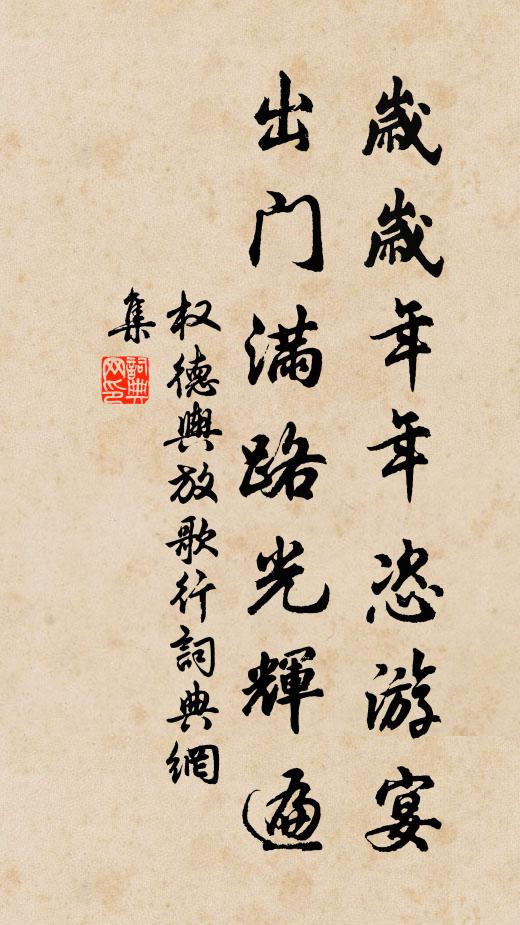 歲歲年年恣游宴
出门滿路光輝遍
权德輿放歌行詞典網
集
詞典网印